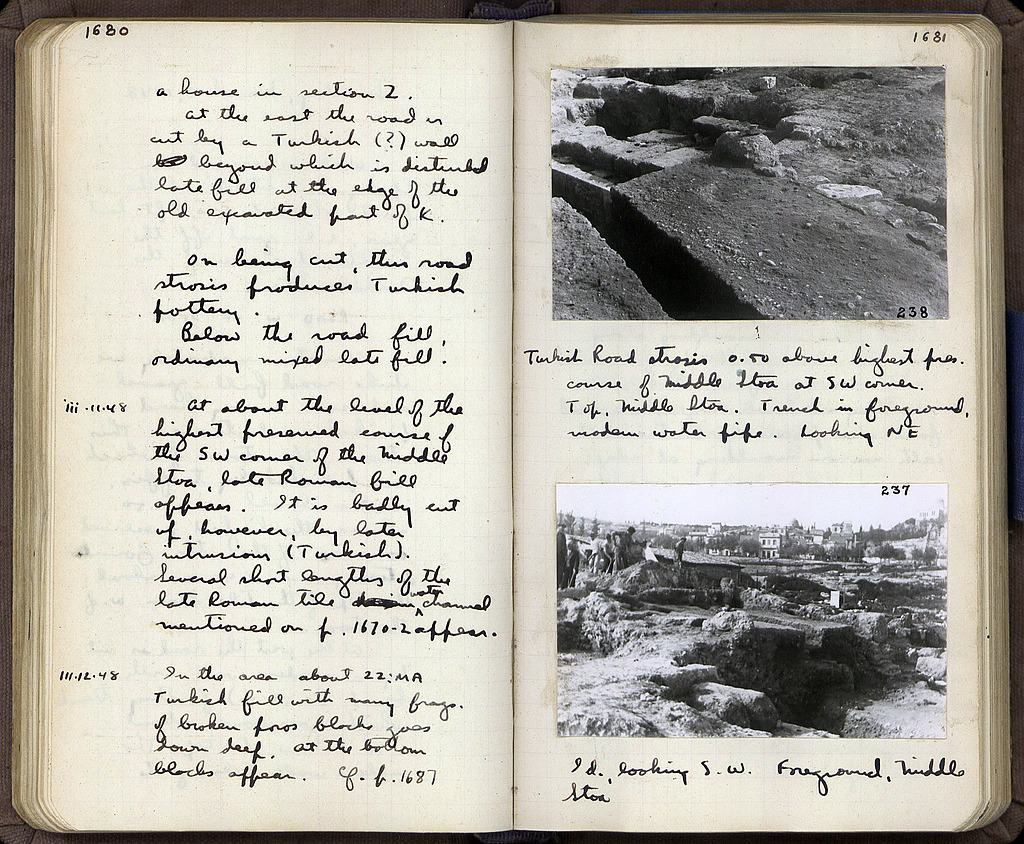 1680
a house in section Z.
At the east the road is
cut by a Turkish (?) wall
beyond which is disturbed
late fill at the edge of the
old excavated part of K.
On being cut, this road
strosis produces Turkish
pottery.
Below the road fill,
ordinary mixed late fill.
iii-11-48 At about the level of the
highest preserved course of
the SW corner of the Middle
Stoa, late Roman fill
appears. It is badly cut
up, however, by later
intrusions (Turkish).
Several short lengths of the
late Roman tile water channel
mentioned on p. 1670-2 appear.
III-12-48 In the area about 22:MA
Turkish fill with many frags.
of broken poros blocks goes
down deep. At the bottom
blocks appear. Cf. p. 1687
1681
238
Turkish Road strosis 0.50 above highest pres.
course of Middle Stoa at SW corner.
Top, Middle Stoa. Trench in foreground,
modern water pipe. Looking NE
237
Id., looking S.W. Foreground, Middle
Stoa